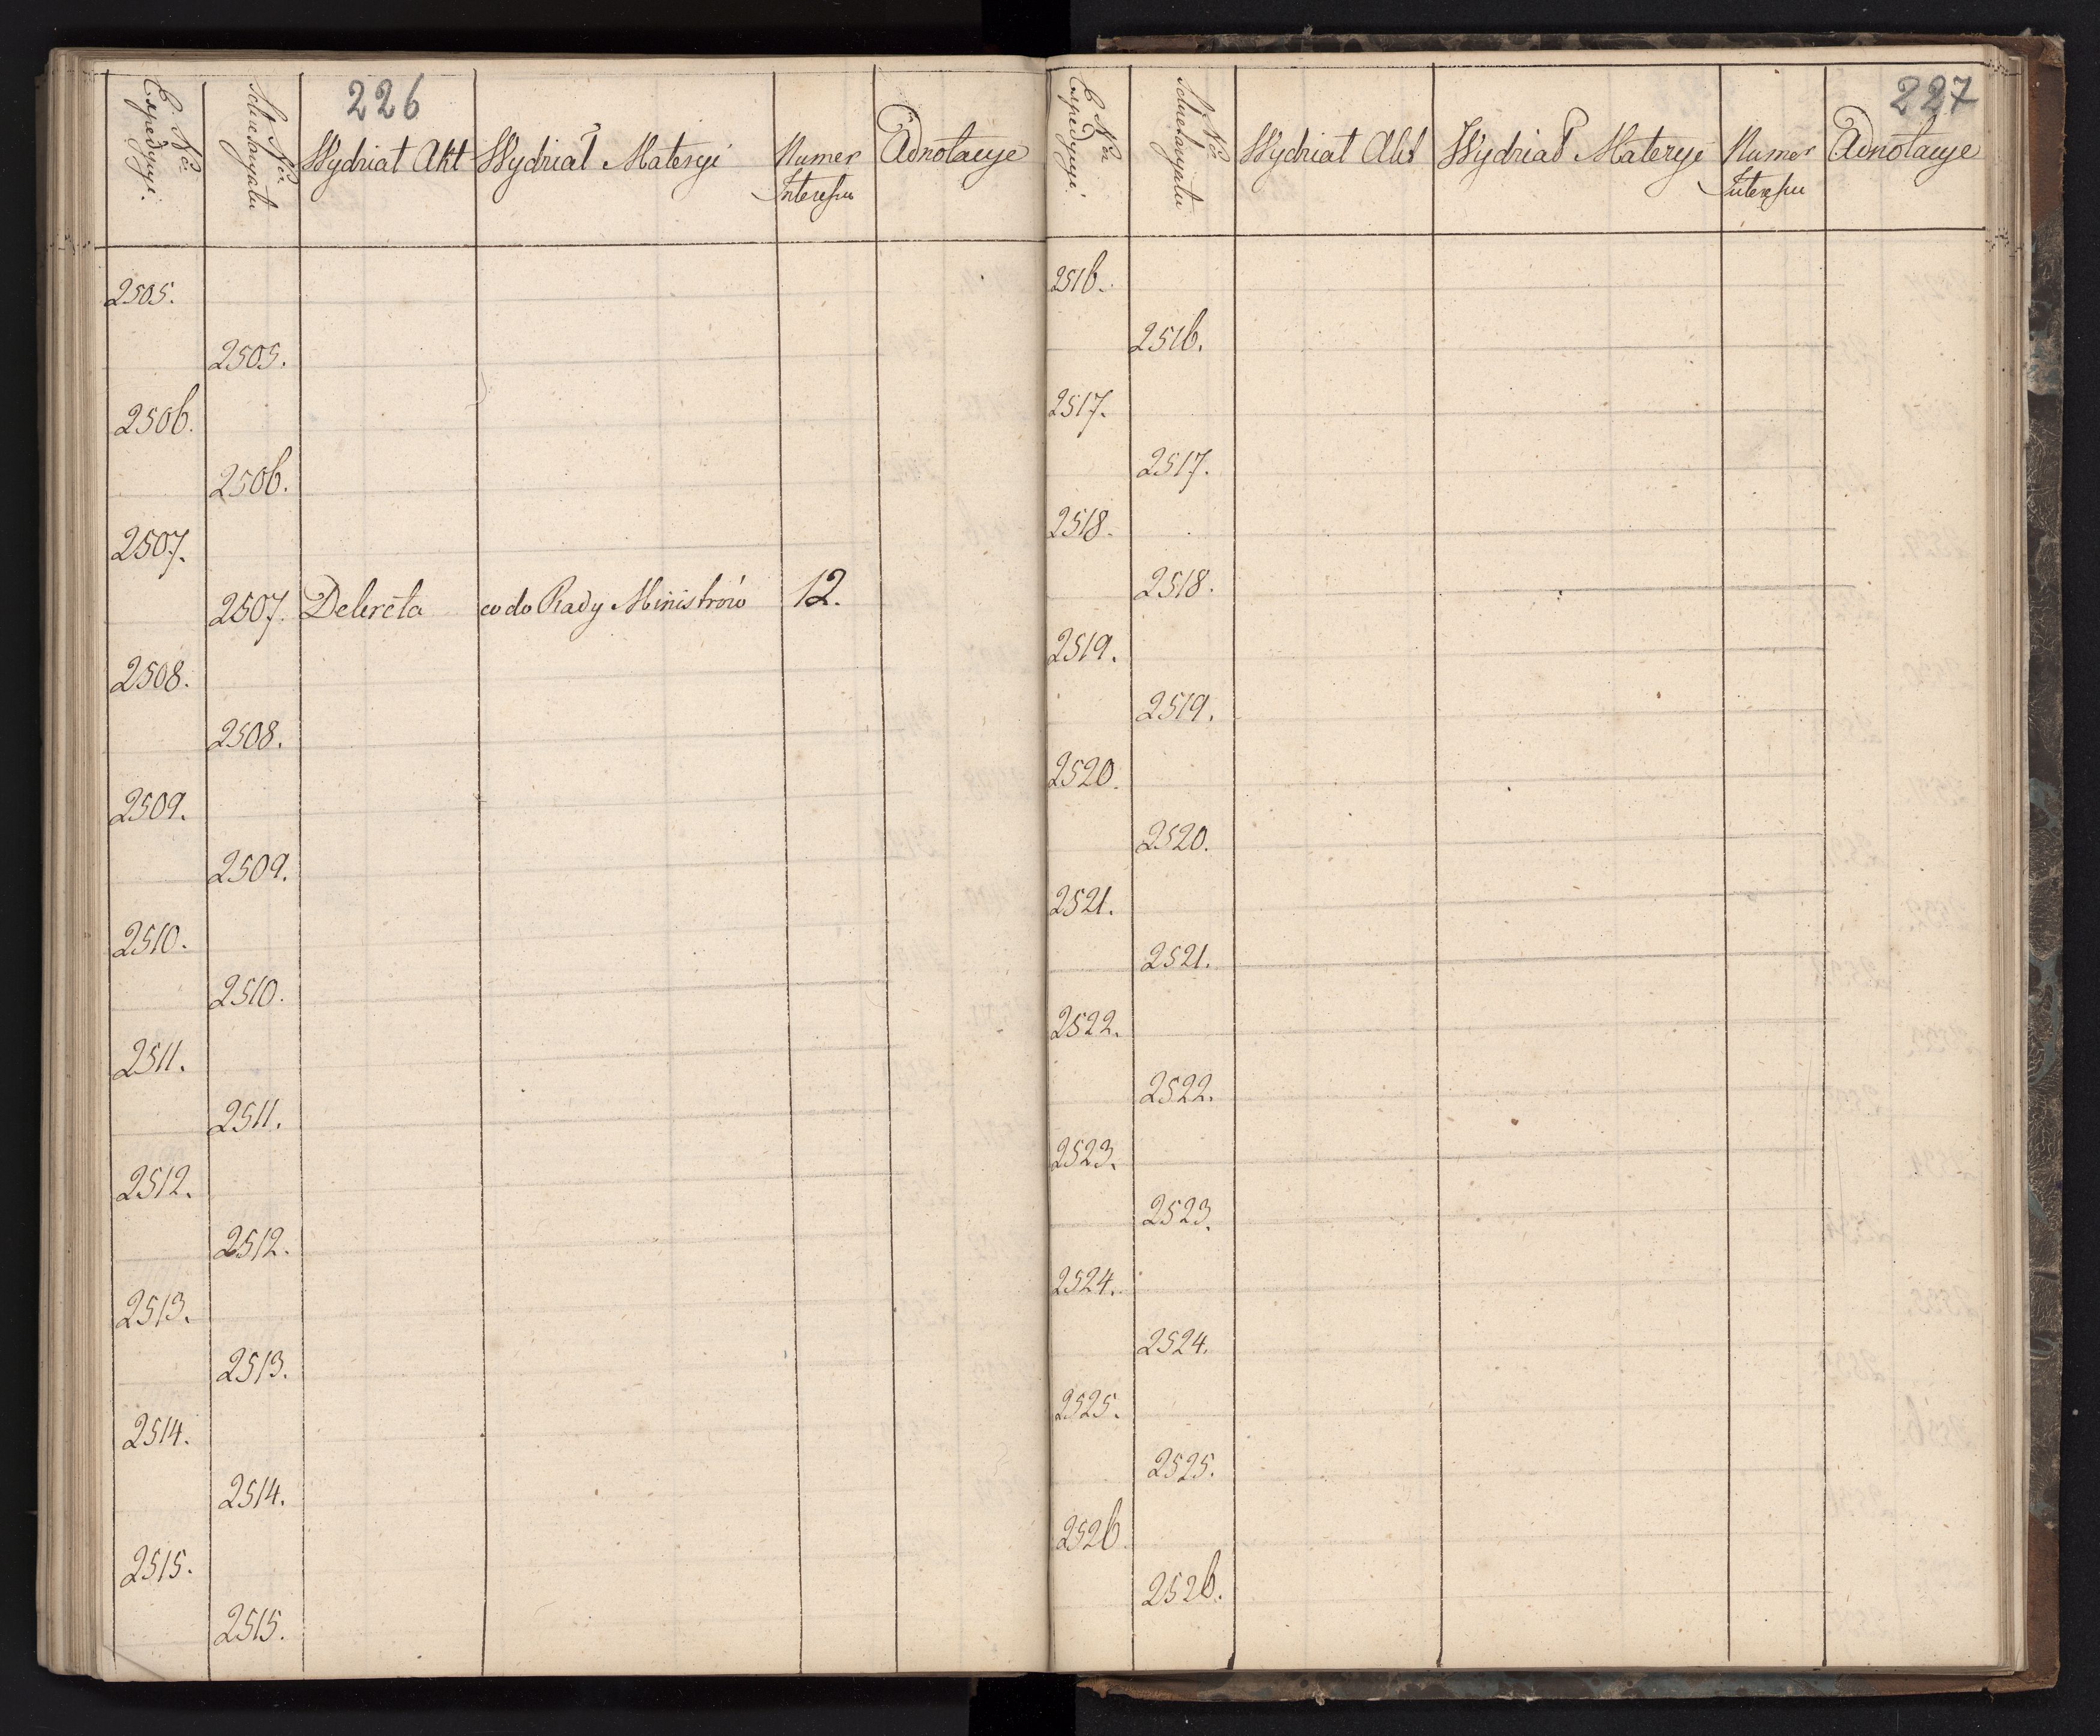 226
C. Nro Expedycyi.
S. Nro Sekretaryatu
Wydział Akt
Wydział Materyi
Numer Interessu
Adnotacye
2505.
2505.
2506.
2506.
2507.
2507. Dekreta co do Rady Ministrów 12.
2508.
2508.
2509.
2509.
2510.
2510.
2511.
2511.
2512.
2512.
2513.
2513.
2514.
2514.
2515.
2515.
227
C. Nro Expedycyi.
Nro Sekretaryatu
Wydział Akt
Wydział Materyi
Numer Interessu
Adnotacye
2516.
2516.
2517.
2517.
2518.
2518.
2519.
2519.
2520.
2520.
2521.
2521.
2522.
2522.
2523.
2523.
2524.
2524.
2525.
2525.
2526.
2526.